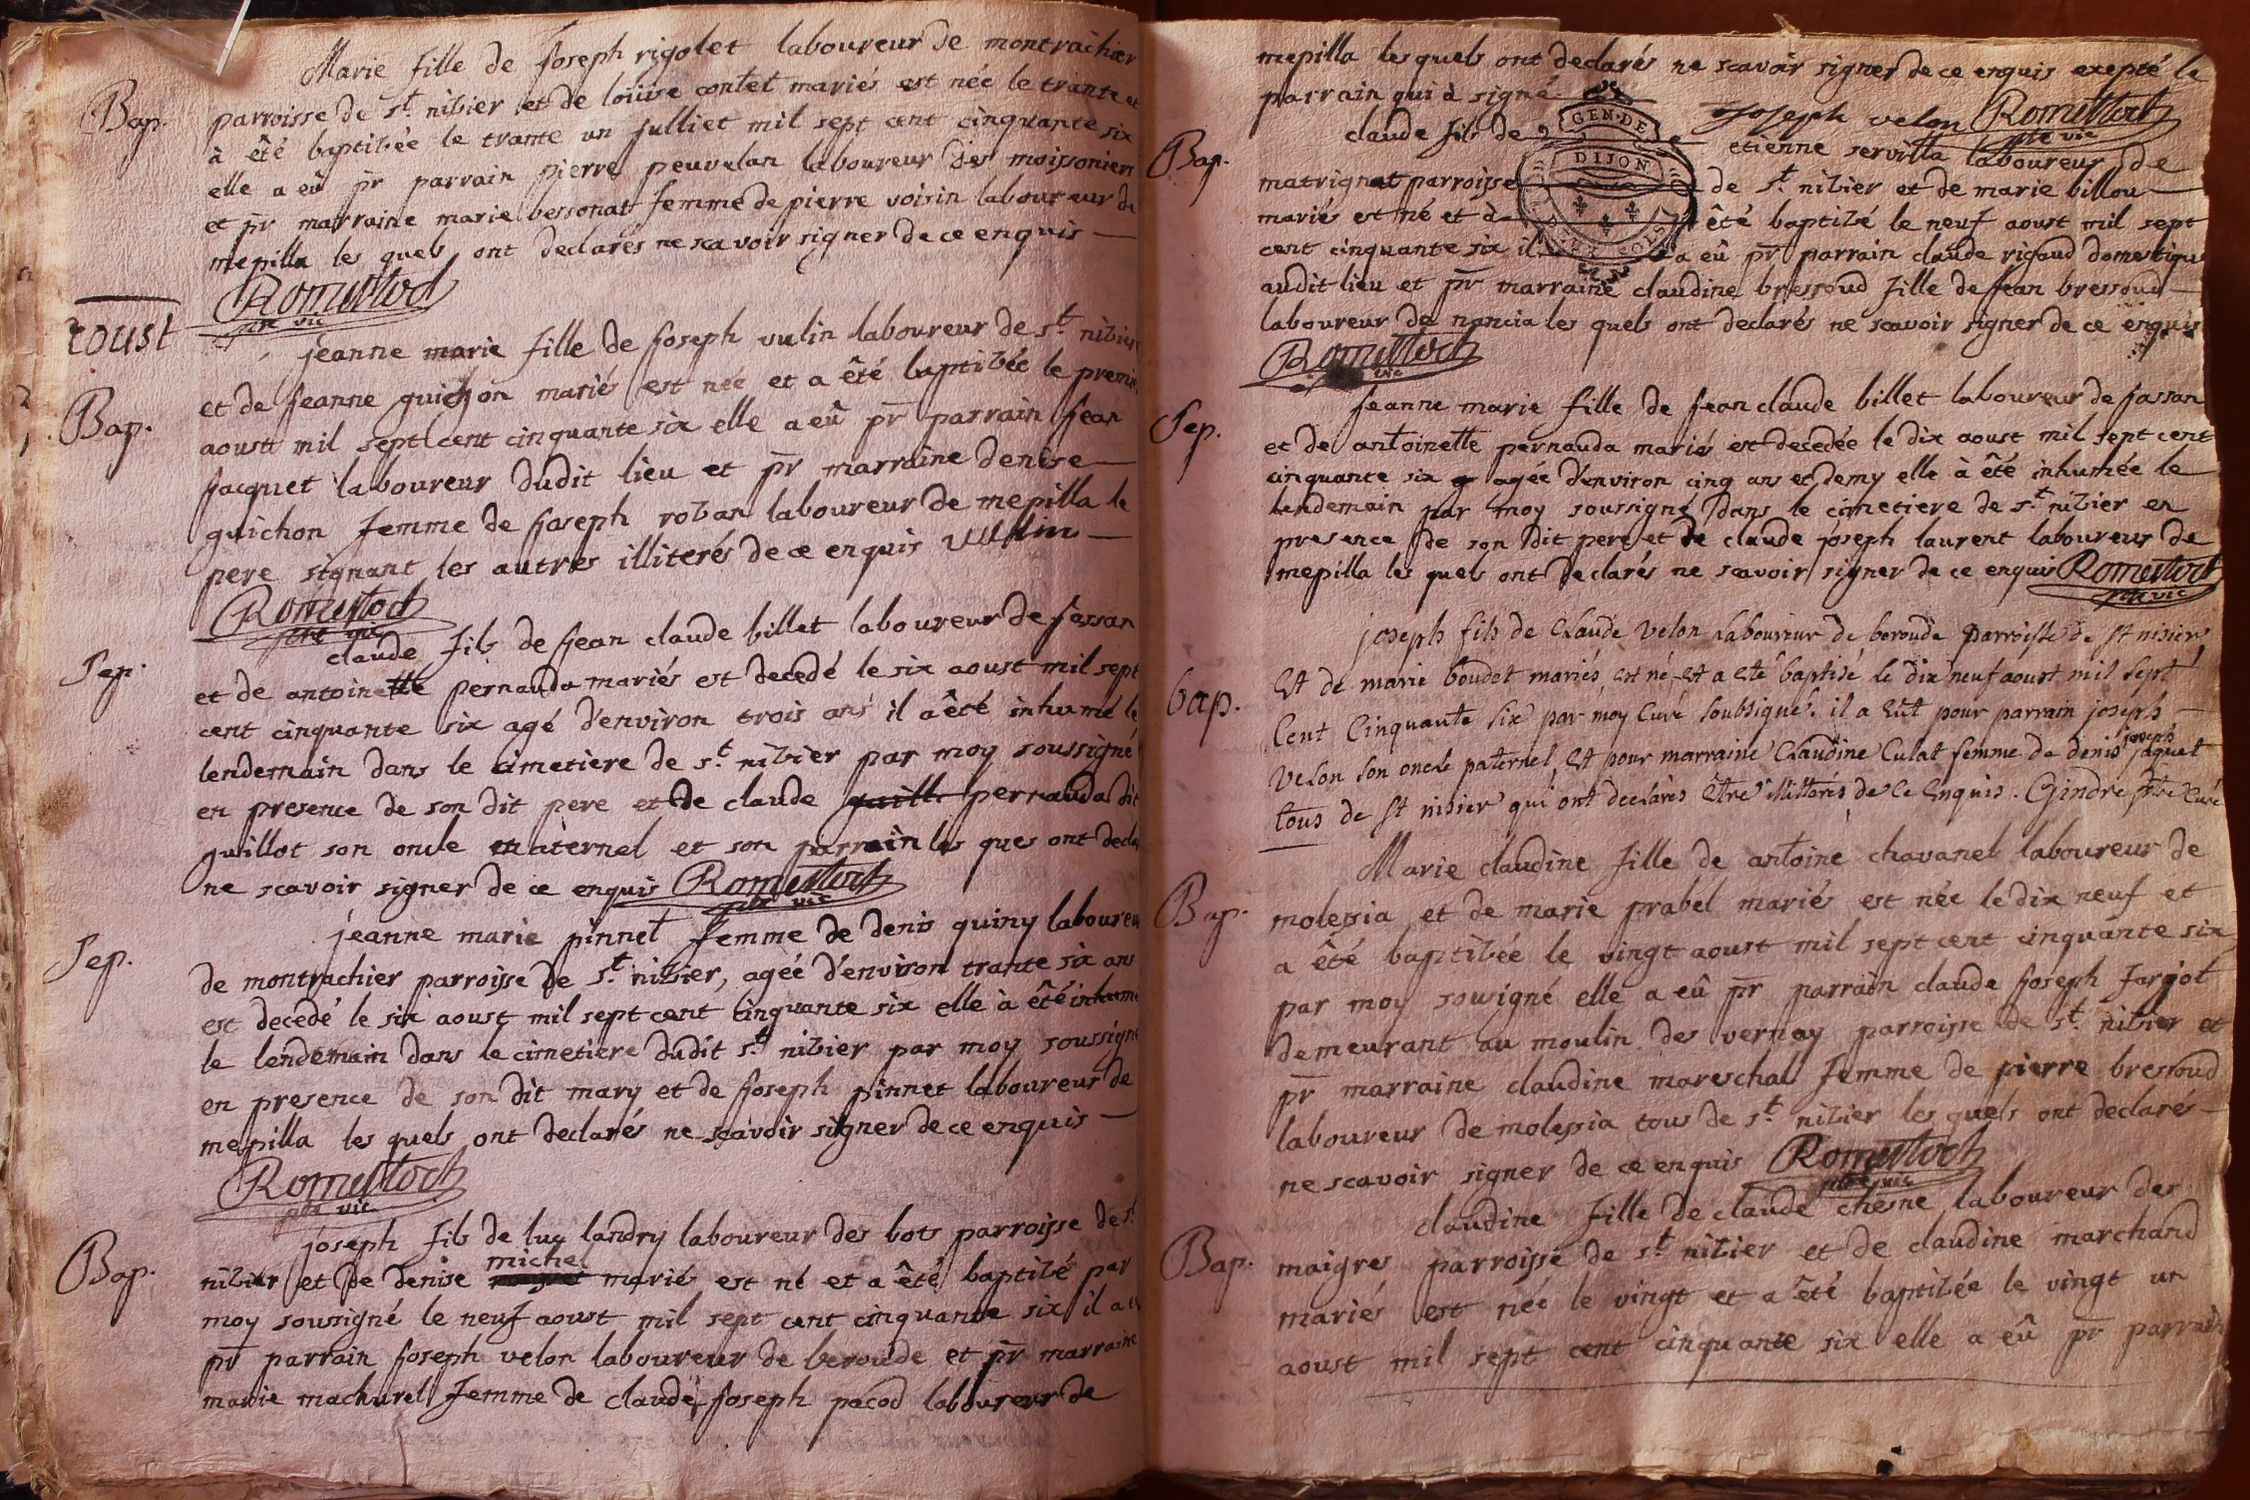 Marie fille de Joseph rigolet laboureur de montrachier
Bap.
parroisse de st. nizier et de loüise contet mariés est née le trante et
à êté baptizée le trante un julliet mil sept cent cinquante six
elle a eû pr parrain pierre peuvelan laboureur des moissoniers
et pr marraine marie bessonat femme de pierre voisin laboureur de
mepilla les quels ont declarés ne scavoir signer de ce enquis
Romestoch
ptre vic
aoust
jeanne marie fille de Joseph vulin laboureur de st. nizier
Bap.
et de Jeanne guichon mariés est née et a êté baptizée le premie
aoust mil sept cent cinquante six elle a eû pr parrain Jean
Jacquet laboureur dudit lieu et pr marraine denise
guichon femme de Joseph roban laboureur de mepilla le
pere signant les autres illiterés de ce enquis vullin
Romestoch
ptre vic
claude fils de Jean claude billet laboureur de Jassan
Sep.
et de antoinette pernauda mariés est decedé le six aoust mil sept
cent cinquante six agé d'environ trois ans il a êté inhumé le
lendemain dans le cimetiere de st. nizier par moy soussigné
en presence de son dit pere et de claude guill pernauda dit
guillot son oncle maternel et son parrain les ques ont decla
ne scavoir signer de ce enquis Romestoch
ptre vic
jeanne marie pinnet femme de denis quiny laboureu
Sep.
de montrachier parroisse de st. nizier, agée d'environ trante six ans
est decedé le six aoust mil sept cent cinquante six elle à êté inhumé
le lendemain dans le cimetiere dudit st. nizier par moy soussigné
en presence de son dit mary et de Joseph pinnet laboureur de
mepilla les quels ont declarés ne scavoir signer de ce enquis
Romestoch
ptre vic
joseph fils de luc landry laboureur des bots parroisse de st.
Bap.
michel
nizier et de denise mariés est né et a êté baptizé par
moy soussigné le neuf aoust mil sept cent cinquante six il a eu
pr parrain Joseph velon laboureur de beroude et pr marraine
marie machurel femme de claude Joseph pacod laboureur de
mepilla les quels ont declarés ne scavoir signer de ce enquis exepté le
parrain qui à signé
Joseph velon Romestoch
ptre vic
GEN. DE
DIJON
claude fils de etienne servilla laboureur de
Bap.
matrignat parroisse de st. nizier et de marie billou
mariés est né et à êté baptizé le neuf aoust mil sept
cent cinquante six il a eû pr parrain claude rigaud domestique
audit lieu et pr marraine claudine bressoud fille de Jean bressoud
laboureur de nancia les quels ont declarés ne scavoir signer de ce enquis
Romestoch
vic
Jeanne marie fille de Jean claude billet laboureur de Jassan
Sep.
et de antoinette pernauda mariés est decedée le dix aoust mil sept cent
cinquante six agée d'environ cinq ans et demy elle à êté inhumée le
lendemain par moy soussigné dans le cimetiere de st. nizier en
presence de son dit pere et de claude joseph laurent laboureur de
mepilla les quels ont declarés ne scavoir signer de ce enquis Romestoch
ptre vic
joseph fils de Claude Velon Laboureur de beroude parroisse de st nisier
bap.
Et de marie boudot mariés, est né et a eté baptisé le dix neuf aoust mil sept
Cent Cinquante six par moy Curé soubsigné. il a Eût pour parrain joseph
Velon son oncle paternel, Et pour marraine Claudine Culat femme de denis joseph jaquet
tous de st nisier qui ont declarés être illitterés de Ce Enquis. Gindre ptre Curé
Marie claudine fille de antoine chavanel laboureur de
Bap.
molessia et de marie prabel mariés est née le dix neuf et
a êté baptizée le vingt aoust mil sept cent cinquante six
par moy sousigné elle a eû pr parrain claude Joseph Jargot
demeurant au moulin des vernay parroisse de st. nizier et
pr marraine claudine mareschal femme de pierre bressoud
laboureur de molessia tous de st. nizier les quels ont declarés
ne scavoir signer de ce enquis Romestoch
ptre vic
claudine fille de claude chesne laboureur des
Bap.
maigres parroisse de st. nizier et de claudine marchand
mariés est née le vingt et a êté baptizée le vingt un
aoust mil sept cent cinquante six elle a eû pr parrain